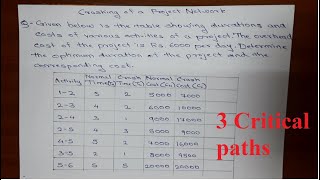 Crashing of a Project Network
Q- Given below is the table showing durations and
costs of various activities of a project. The overhead
cost of the project is Rs. 6000 per day. Determine
the optimum duration of the project and the
corresponding cost.
Activity Normal Time(Tn) Crash Time(Tc) Normal Cost(Cn) Crash Cost(Cc)
1-2 3 2 5000 7000
2-3 4 2 6000 10000
2-4 3 1 9000 17000
2-5 4 3 5000 9000
4-5 5 7000 16000
3-5 2 1
5-6 5 5 20000 20000
3 Critical
paths